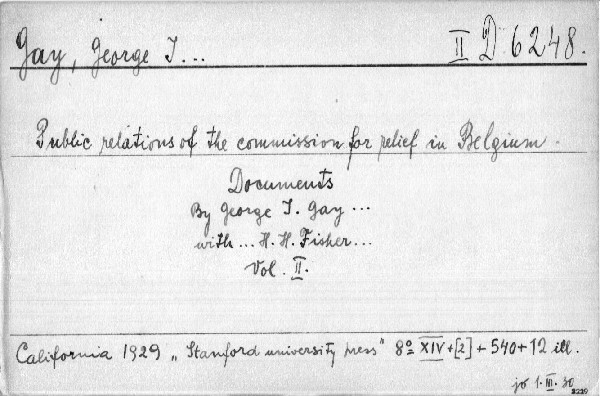 Gay, George I... II D 6248.
Public relations of the commission for relief in Belgium.
Documents
By George I. Gay ...
with ... H. H. Fisher ...
Vol. II.
California 1929 „Stamford university press" 8° XIV+[2]+540+12 ill.
1.III.30